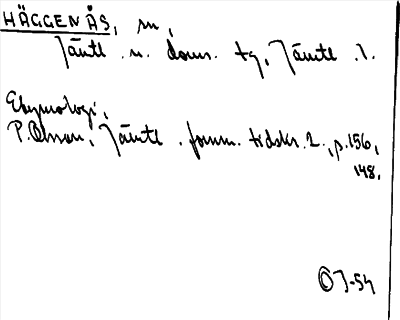 HÄGGENÅS, sn,
Jämtl. n. doms. tg, Jämtl. l.
Etymologi,
P. Olsson, Jämtl. fornm. tidskr. 2, p. 156,
148.
OJ-54